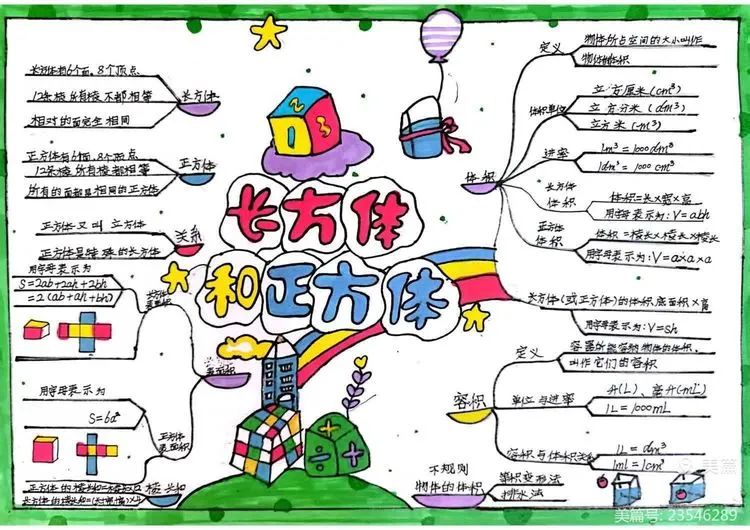 长方体
和正方体
长方体有6个面，8个顶点
12条棱 所有棱 不都相等
相对的面完全相同
长方体
正方体有6个面，8个顶点
12条棱 所有棱都相等
所有的面都是相同的正方体
正方体
正方体又叫 立方体
正方体是特殊的长方体
关系
用字母表示为
S=2ab+2ah+2bh
=2(ab+ah+bh)
长方体
表面积
表面积
用字母表示为
S=6a²
正方体
表面积
棱长和
定义
物体所占空间的大小叫作
物体的体积
体积单位
立方厘米(cm³)
立方分米(dm³)
立方米(m³)
进率
1m³=1000dm³
1dm³=1000cm³
体积
长方体
体积
体积=长×宽×高
用字母表示为：V=abh
正方体
体积
体积=棱长×棱长×棱长
用字母表示为：V=a×a×a
长方体(或正方体)的体积 底面积×高
用字母表示为：V=Sh
定义
容器所能容纳物体的体积，
叫作它们的容积
容积
单位与进率
升(L)、毫升(mL)
1L=1000mL
容积与体积关系
1L=dm³
1ml=1cm³
不规则
物体的体积
等积变形法
排水法
2
0
3
美篇
美篇号：23546289